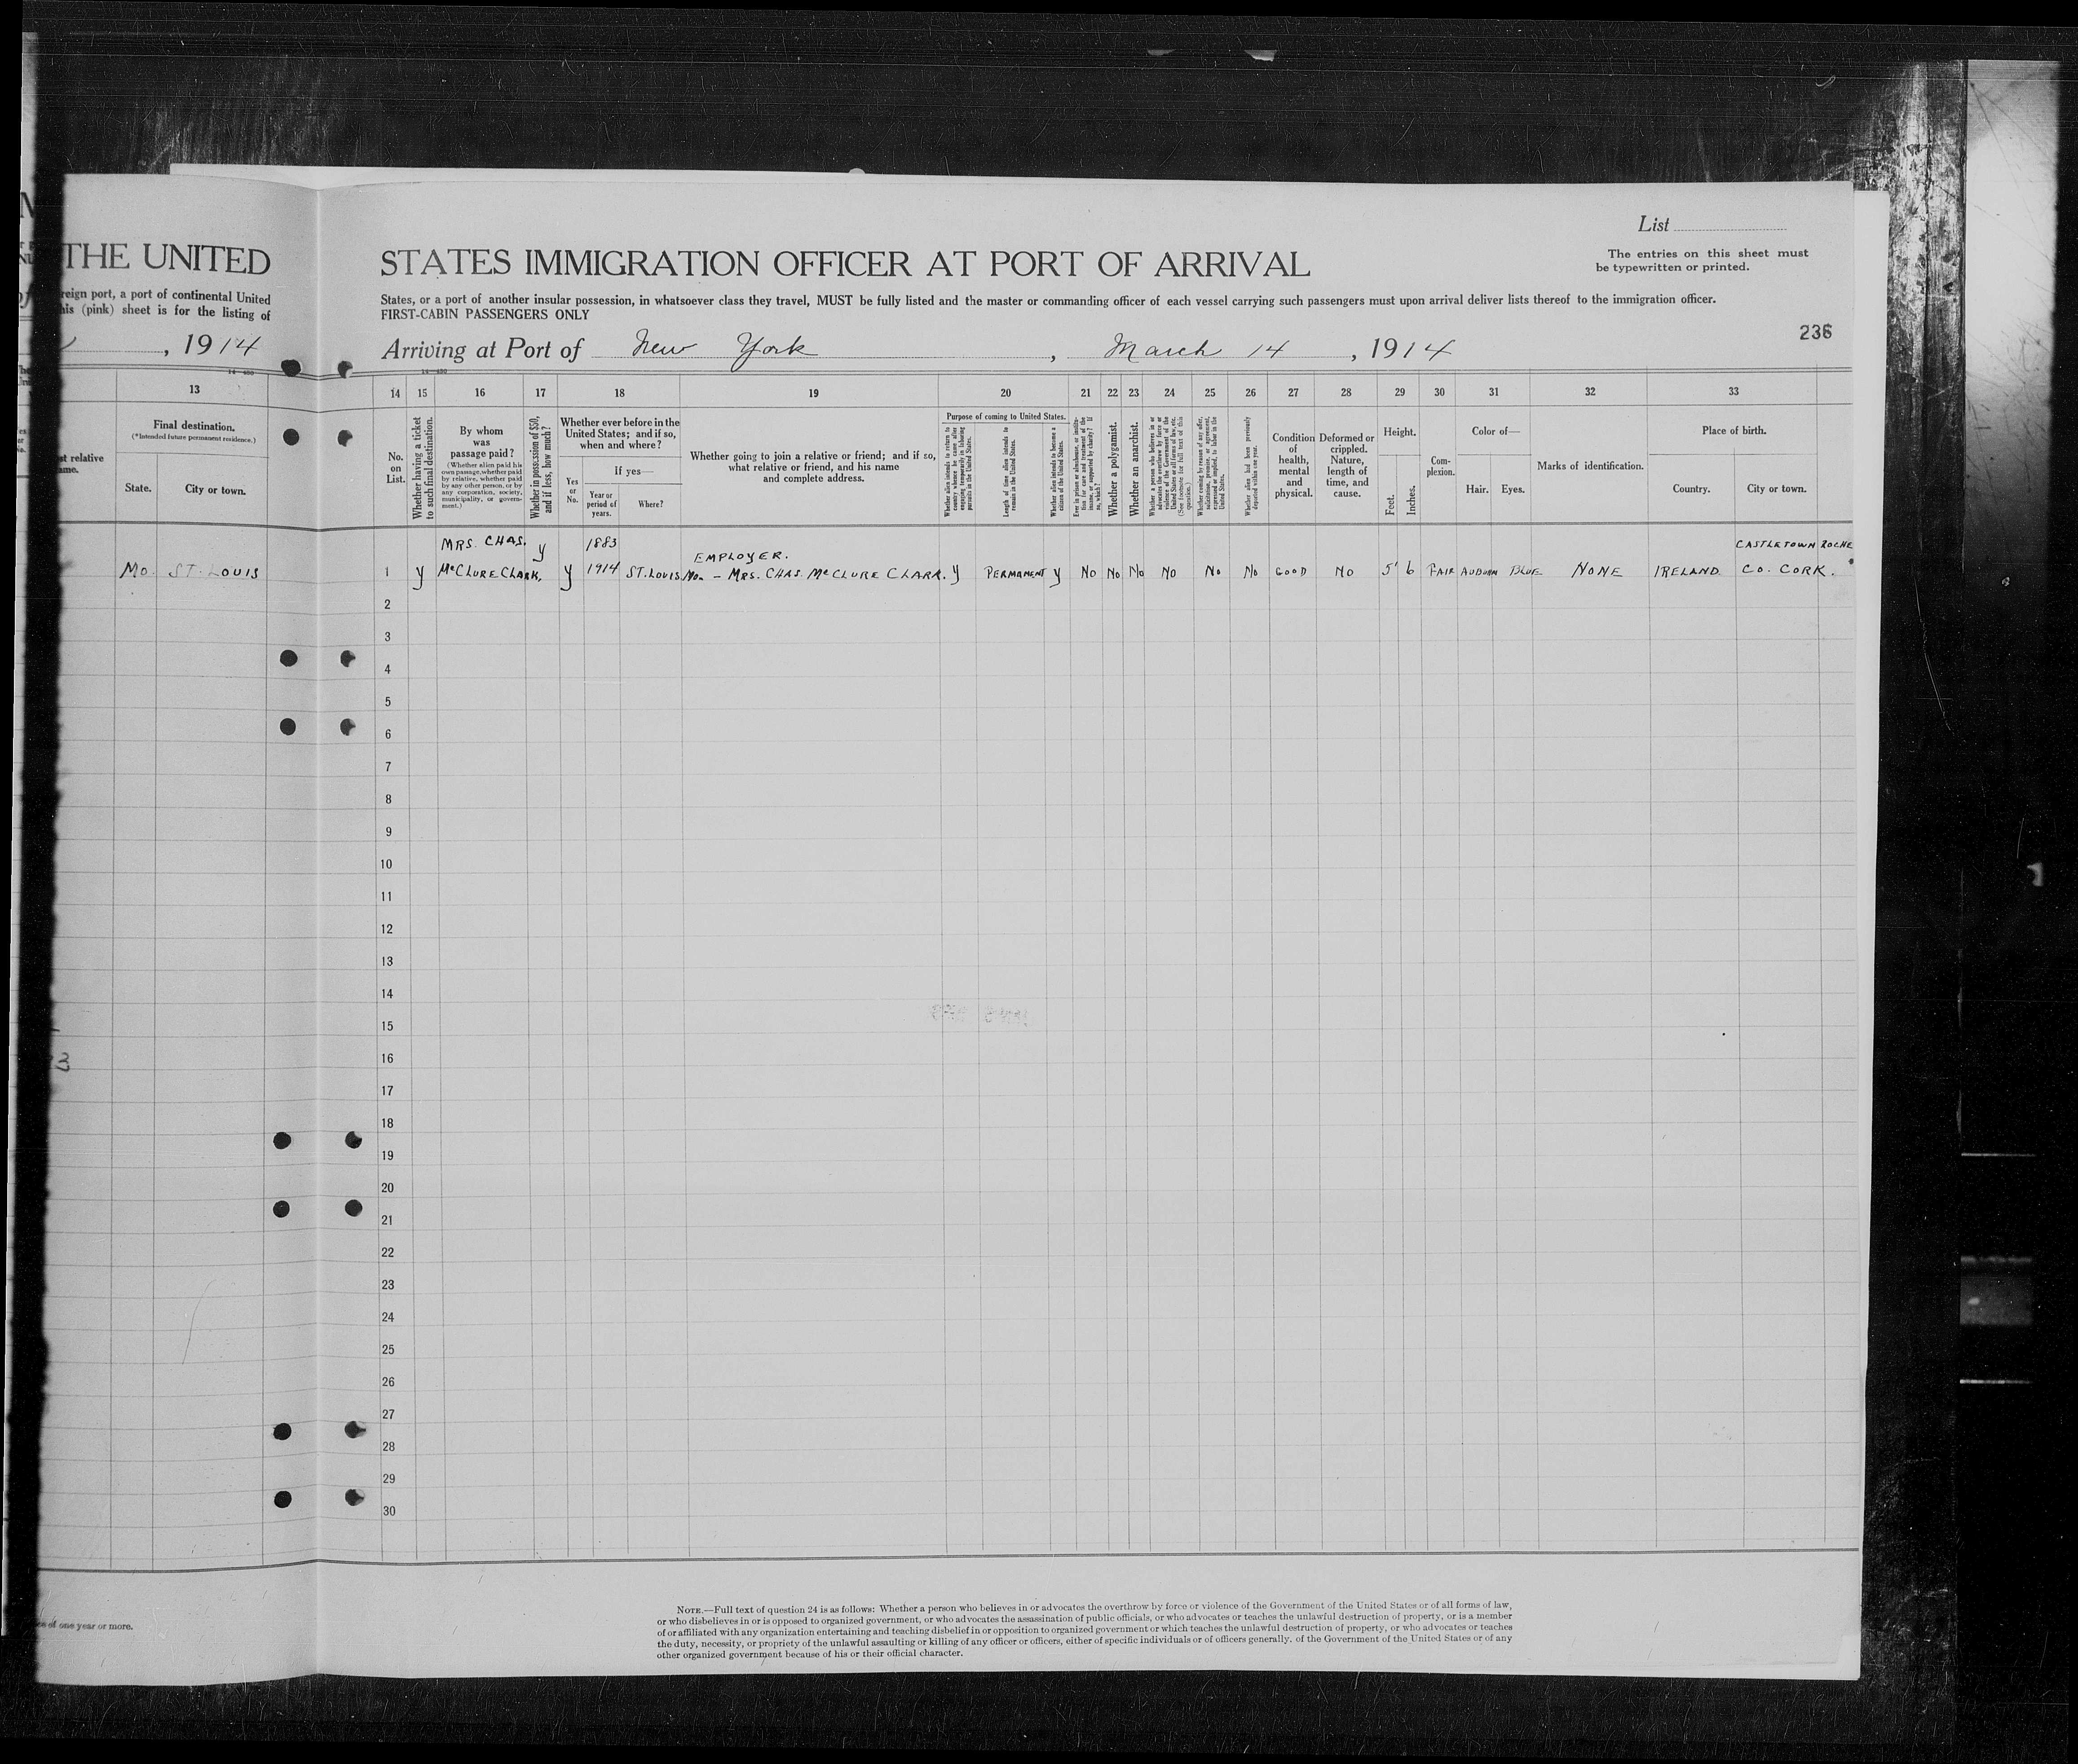 THE UNITED
reign port, a port of continental United
his (pink) sheet is for the listing of
, 1914
13
Final destination.
(*Intended future permanent residence.)
st relative
ame.
State.
City or town.
MO. ST. LOUIS
of one year or more.
List
The entries on this sheet must
be typewritten or printed.
STATES IMMIGRATION OFFICER AT PORT OF ARRIVAL
States, or a port of another insular possession, in whatsoever class they travel, MUST be fully listed and the master or commanding officer of each vessel carrying such passengers must upon arrival deliver lists thereof to the immigration officer.
FIRST-CABIN PASSENGERS ONLY
236
Arriving at Port of New York, March 14, 1914
14 15 16 17 18 19 20 21 22 23 24 25 26 27 28 29 30 31 32 33
No.
on
List.
Whether having a ticket
to such final destination.
By whom
was
passage paid?
(Whether alien paid his
own passage, whether paid
by relative, whether paid
by any other person, or by
any corporation, society,
municipality, or govern-
ment.)
Whether in possession of $50,
and if less, how much?
Whether ever before in the
United States; and if so,
when and where?
Yes
or
No.
If yes—
Year or
period of
years.
Where?
Whether going to join a relative or friend; and if so,
what relative or friend, and his name
and complete address.
Purpose of coming to United States.
Whether alien intends to return to
country whence he came after
engaging temporarily in laboring
pursuits in the United States.
Length of time alien intends to
remain in the United States.
Whether alien intends to become a
citizen of the United States.
Ever in prison or almshouse, or institu-
tion for care and treatment of the
insane, or supported by charity? If
so, which?
Whether a polygamist.
Whether an anarchist.
Whether a person who believes in or
advocates the overthrow by force or
violence of the Government of the
United States or all forms of law, etc.
(See footnote for full text of this
question.)
Whether coming by reason of any offer,
solicitation, promise, or agreement,
expressed or implied, to labor in the
United States.
Whether alien had been previously
deported within one year.
Condition
of
health,
mental
and
physical.
Deformed or
crippled.
Nature,
length of
time, and
cause.
Height.
Feet.
Inches.
Com-
plexion.
Color of—
Hair.
Eyes.
Marks of identification.
Place of birth.
Country.
City or town.
MRS. CHAS. y 1883 EMPLOYER. CASTLETOWN ROCHE
1 y McCLURE CLARK, y 1914 ST. LOUIS Mo. - MRS. CHAS. McCLURE CLARK. y PERMANENT y NO NO NO NO NO NO GOOD NO 5' 6 FAIR AUBURN BLUE NONE IRELAND CO. CORK.
2
3
4
5
6
7
8
9
10
11
12
13
14
15
16
17
18
19
20
21
22
23
24
25
26
27
28
29
30
NOTE.—Full text of question 24 is as follows: Whether a person who believes in or advocates the overthrow by force or violence of the Government of the United States or of all forms of law,
or who disbelieves in or is opposed to organized government, or who advocates the assassination of public officials, or who advocates or teaches the unlawful destruction of property, or is a member
of or affiliated with any organization entertaining and teaching disbelief in or opposition to organized government or which teaches the unlawful destruction of property, or who advocates or teaches
the duty, necessity, or propriety of the unlawful assaulting or killing of any officer or officers, either of specific individuals or of officers generally. of the Government of the United States or of any
other organized government because of his or their official character.